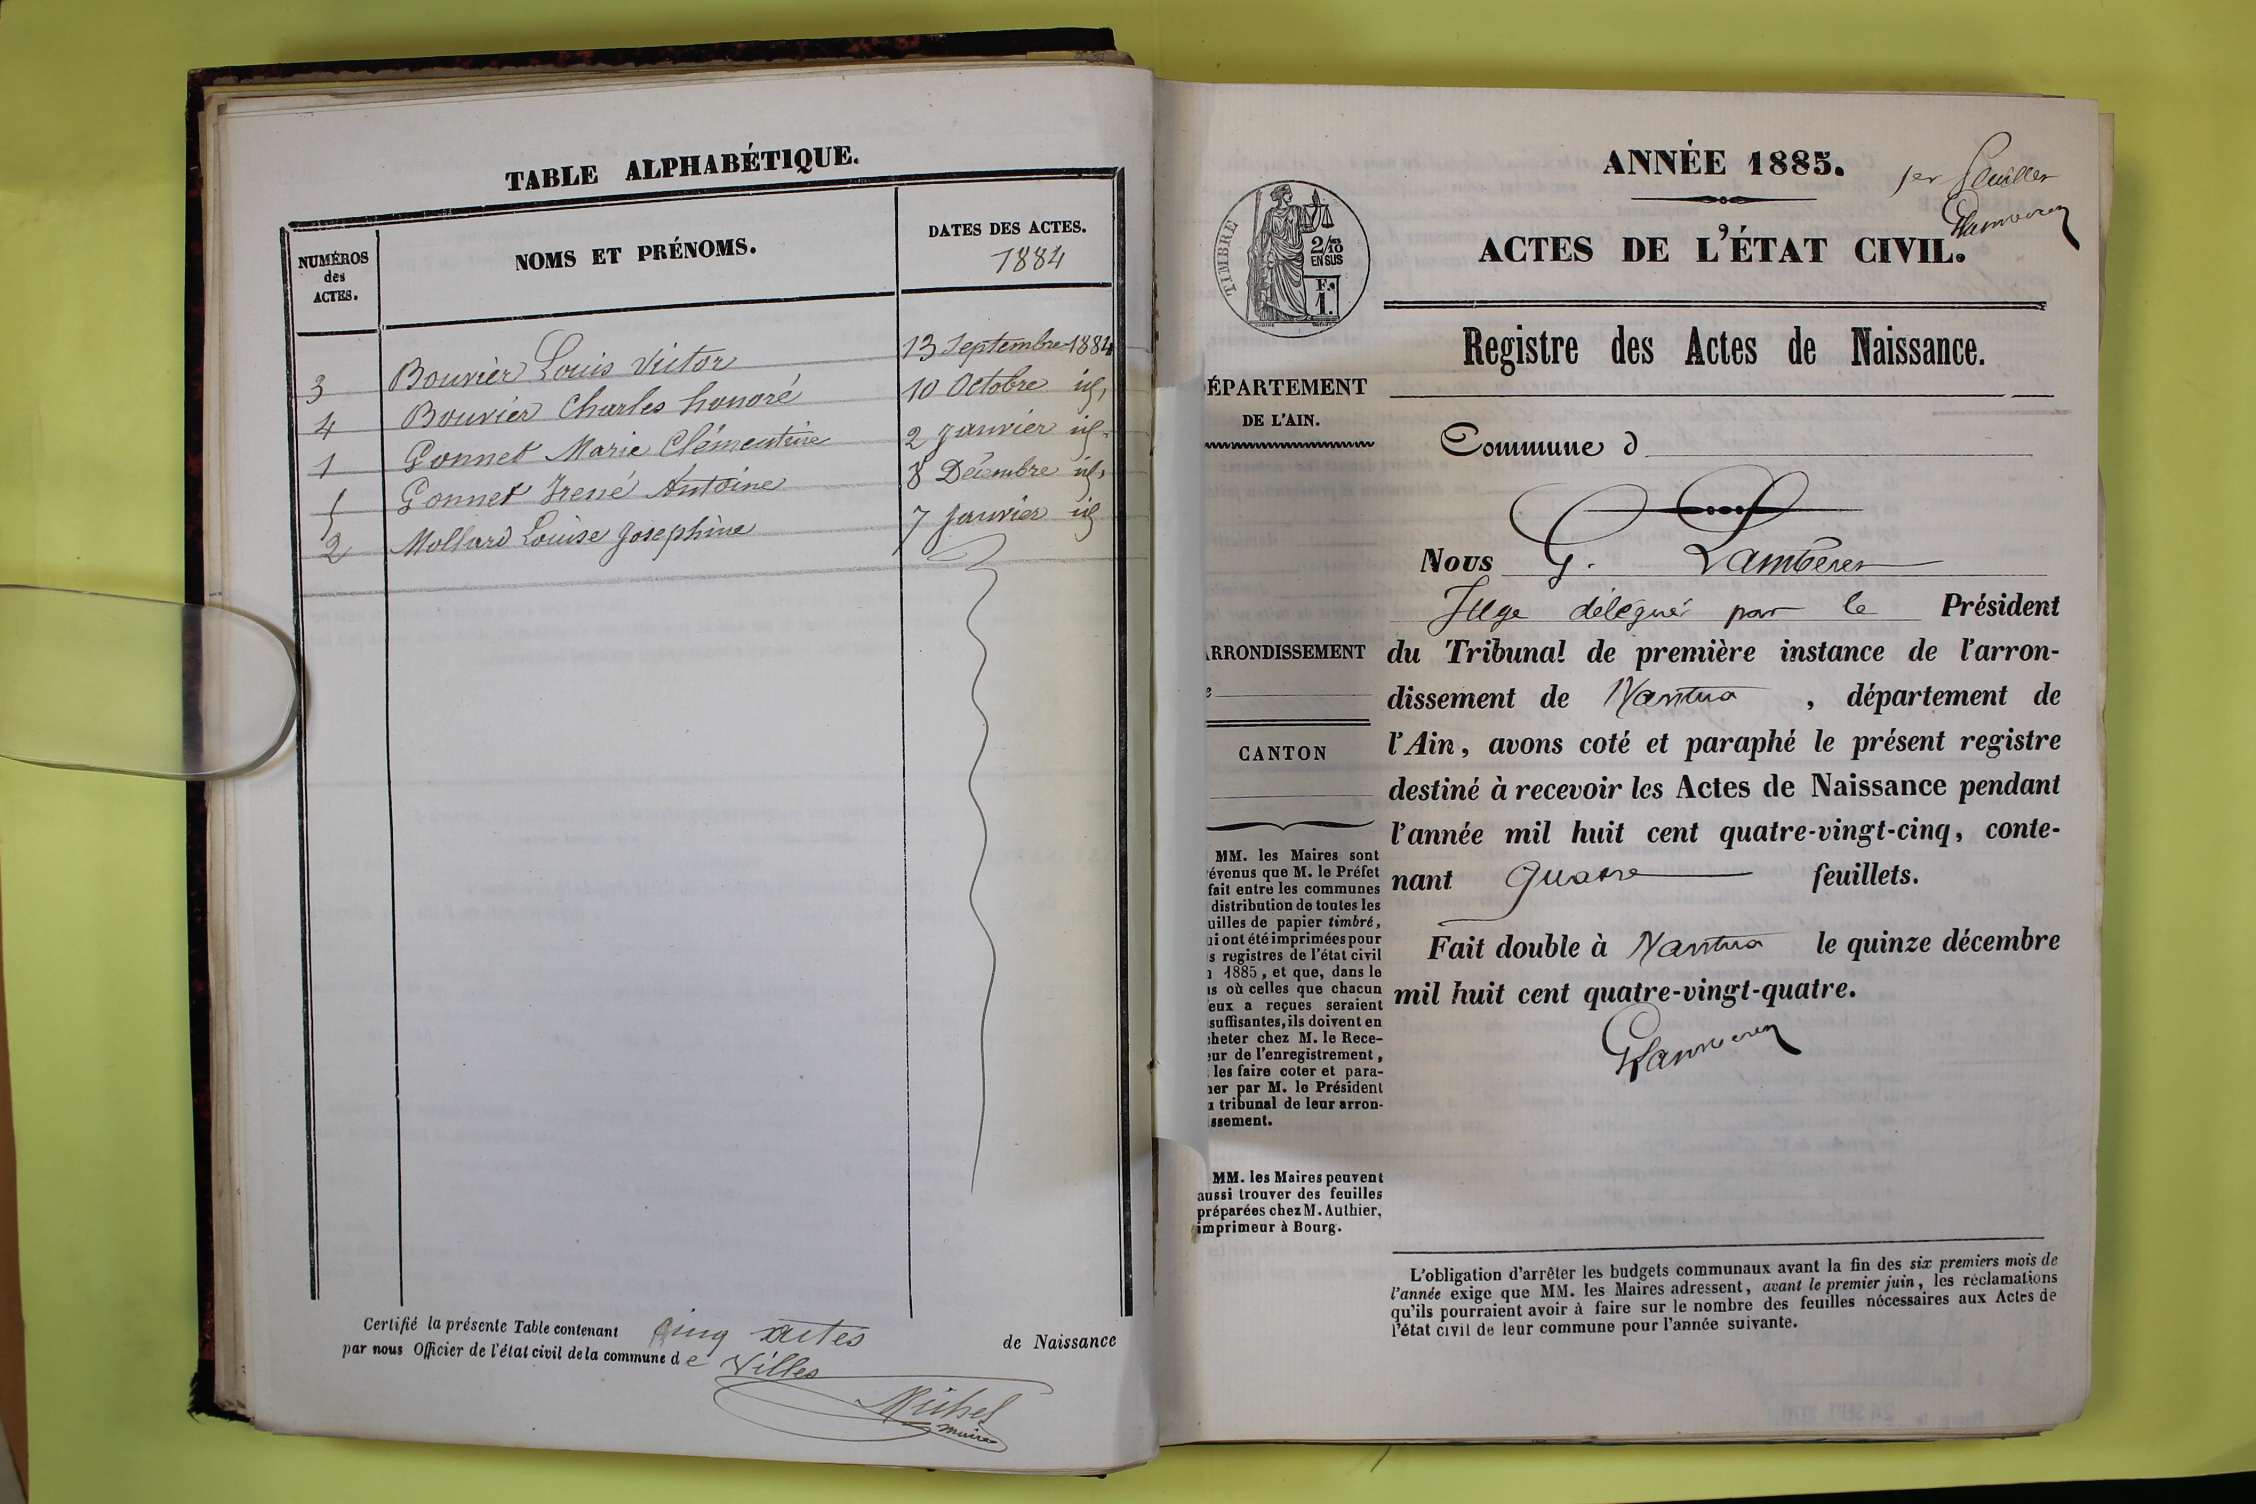 TABLE ALPHABÉTIQUE.
NUMÉROS
des
ACTES.
NOMS ET PRÉNOMS.
DATES DES ACTES.
1884
3 Bouvier Louis Victor 13 Septembre 1884
4 Bouvier Charles honoré 10 Octobre id,
1 Gonnet Marie Clémentine 2 Janvier id.
5 Gonnet Antoine 8 Décembre id,
2 Mollard Louise Josephine 7 Janvier id
Certifié la présente Table contenant cinq actes de Naissance
par nous Officier de l'état civil de la commune de Villes
Michel
maire
ANNÉE 1885.
1er feuillet
ACTES DE L'ÉTAT CIVIL.
TIMBRE
2/10
EN SUS
F.
1.
Registre des Actes de Naissance.
ÉPARTEMENT
DE L'AIN.
Commune d
Nous G.
Juge délégué par le Président
du Tribunal de première instance de l'arron-
dissement de Nantua, département de
l'Ain, avons coté et paraphé le présent registre
destiné à recevoir les Actes de Naissance pendant
l'année mil huit cent quatre-vingt-cinq, conte-
nant quatre feuillets.
Fait double à Nantua le quinze décembre
mil huit cent quatre-vingt-quatre.
RRONDISSEMENT
e
CANTON
MM. les Maires sont
évenus que M. le Préfet
fait entre les communes
distribution de toutes les
uilles de papier timbré,
ui ont été imprimées pour
s registres de l'état civil
1885, et que, dans le
s où celles que chacun
eux a reçues seraient
suffisantes, ils doivent en
heter chez M. le Rece-
eur de l'enregistrement,
les faire coter et para-
her par M. le Président
u tribunal de leur arron-
issement.
MM. les Maires peuvent
aussi trouver des feuilles
préparées chez M. Authier,
imprimeur à Bourg.
L'obligation d'arrêter les budgets communaux avant la fin des six premiers mois de
l'année exige que MM. les Maires adressent, avant le premier juin, les réclamations
qu'ils pourraient avoir à faire sur le nombre des feuilles nécessaires aux Actes de
l'état civil de leur commune pour l'année suivante.